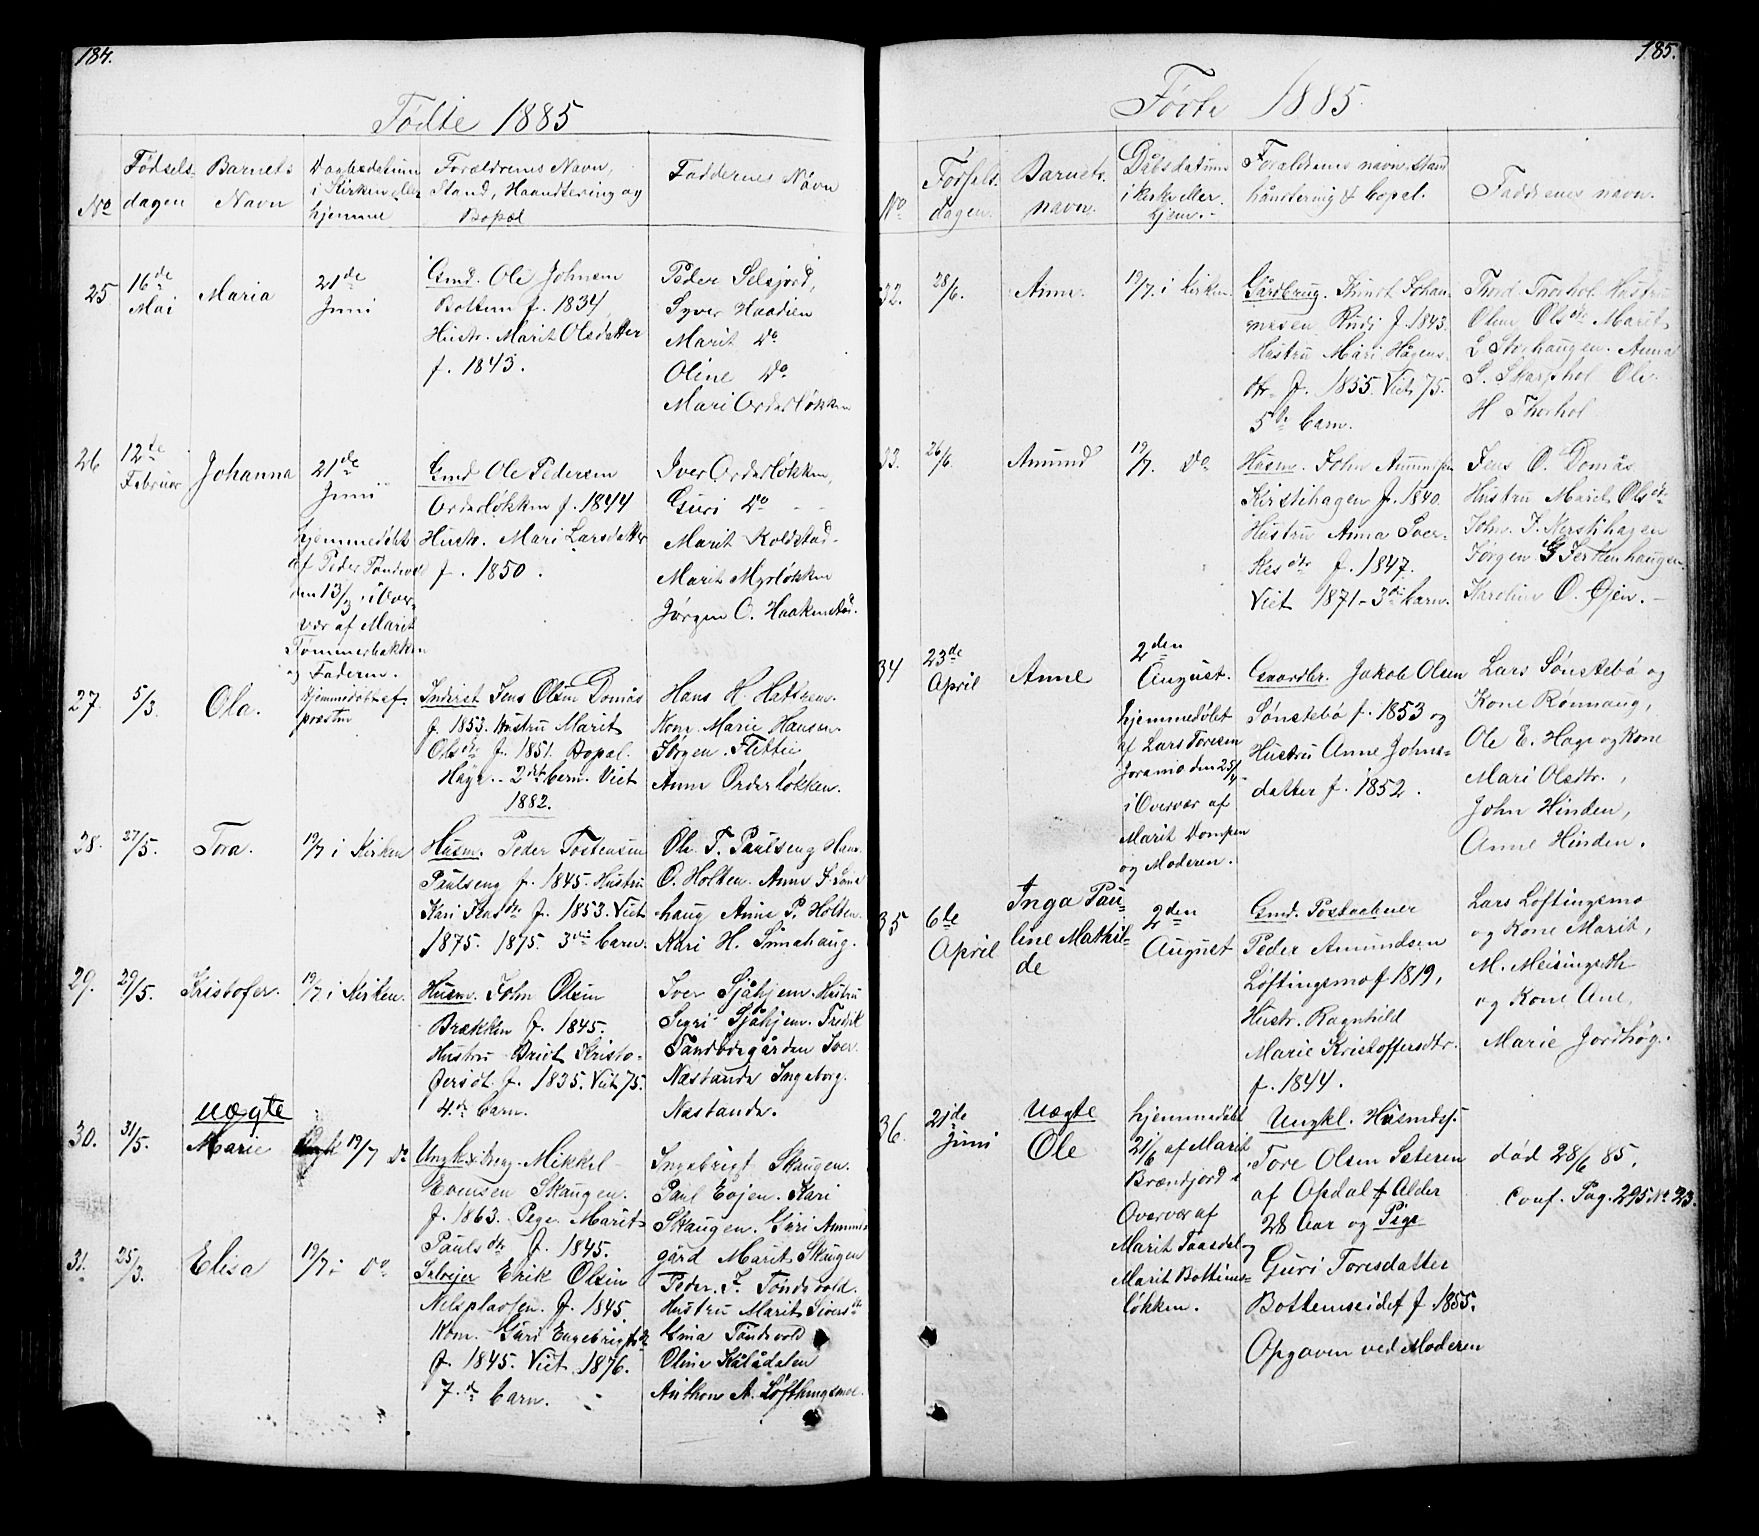 184.
Fødte 1885
No
Fødsels-
dagen
Barnets
Navn
Daabsdatum
i Kirken eller
hjemme
Forældrenes Navn,
Stand, Haandtering og
Bopæl
Faddernes Navn
25
16de
Mai
Maria
21de
Juni
Gmd. Ole Johnsen
Bottem f. 1834,
Hustr. Marit Olsdatter
f. 1843.
Peder Selsjord,
Syver Haadien
Marit Do
Oline Do
Mari Orderløkken
26
12te
Februar
Johanna
21de
Juni
hjemmedøbt
af Peder Tøndevold
den 13/3 i Over-
vær af Marit
Tømmerbakken
og Faderen.
Gmd Ole Pedersen
Orderløkken f. 1844
Hustr. Mari Larsdatter
f. 1850.
Iver Orderløkken,
Guri Do
Marit Koldstad
Marit Myrløkken
Jørgen O. Haakenstad.
27.
5/3.
Ola.
Hjemmedøbt af
presten
Inderst Jens Olsen Domås
f. 1853. Hustru Marit
Olsdtr f. 1851. Bopæl.
Hage. 2det barn. Viet
1882.
Hans H. Hatrem.
Kone Marie Hansen.
Jørgen Flittie
Anne Orderløkken.
28.
27/5.
Tora.
19/7 i Kirken
Husm. Peder Tostensen
Paulseng f. 1845. Hustru
Kari Flasdtr f. 1853. Viet
1875. 1875. 3die barn.
Ole T. Paulseng Hans
O. Holten. Anne
haug Anne P. Holten
Kari H. Sonahaug.
29.
29/5.
Kristofer.
19/7 i Kirken.
Husm. John Olsen
Brækken f. 1845.
Hustru Briit Kristo-
fersdt. f. 1835. Viet 75.
4de barn.
Iver Sjåhjem Hustru
Sigri Sjåhjem. Fredrik
Tandodegården Iver
Næstande Ingeborg.
Næstande.
30.
31/5.
uægte
Marie
19/7 Do
Ungk. & Brug. Mikkel
Evensen Skaugen.
f. 1863. Pige Marit
Paulsdtr f. 1845.
Ingebrigt Skaugen.
Paul Eojen. Kari
Skaugen. Guri Ammis
gård Marit Skaugen
31.
25/3.
Elisa
19/7 i Do
Selveier Erik Olsen
Nelsplassen. f. 1845.
Kone. Guri Engebrigtsdtr
f. 1845. Viet. 1876.
7de barn.
Peder. I. Tøndevold.
Hustru Marit Siversdtr
Tøndevold
Oline Kålådalen
Anthon A. Løftingsmoe.
185.
Føde 1885.
No
Fødsels
dagen.
Barnets
navn.
Dåbsdatum
i kirke eller
hjem.
Forældrenes navn, stand
håndtering & bopel.
Faddrenes navn.
32.
28/6.
Anne.
19/7. i Kirken.
Gårdbrug. Knut Johan-
nesen Rudi f. 1843.
Hustru Mari Hågens-
dtr. f. 1855. Viet 75.
5te barn.
Thord Thorhol Hustru
Oline Olsdtr Marit
L Storhaugen. Anna
P. Skarphol Ole
H Thorhol
33.
26/6.
Amund
19/7. Do
Husm. John Ammensen
Kirstihagen f. 1840.
Hustru Anna Sver-
kesdtr f. 1847.
Viet 1871 - 3die barn.
Jens O. Domås
Hustru Marit Olsdtr
John I. Kerstihagen
Jørgen G Jerkenhaugen
Karoline O. Øien.
34
23de
April
Anne
2den
August.
hjemmedøbt
af Lars Toresen
Joramo den 25/4
i Overvær af
Marit Dompen
og Moderen.
Gaardbr. Jakob Olsen
Sønstebø f. 1853 og
Hustru Anne Johns-
datter f. 1852.
Lars Sønstebø og
Kone Rønnaug,
Ole E. Hage og Kone
Mari Olsdtr.,
John Hinden,
Anne Hinden.
35
6te
April
Inga Pau-
line Mathil-
de
2den
August
Gmd. Postaabner
Peder Amundsen
Løftingsmo f 1819,
Hustr. Ragnhild
Marie Kristoffersdtr.
f. 1844.
Lars Løftingsmo
og Kone Marit,
M. Meisingseth
og Kone Ane,
Marie Jordhøg.
36.
21de
Juni
Uægte
Ole
hjemmedøbt
21/6 af Marit
Brændjord i
Overvær af
Marit Taasdal og
Marit Bottems-
løkken.
Ungkl. Husmds.
Tore Olsen Sæteren
af Opdal f Alder
28 Aar og Pige
Guri Toresdatter
Bottemseidet f 1855.
Opgaven ved Moderen
død 28/6 85.
conf. Pag. 295 No 23.